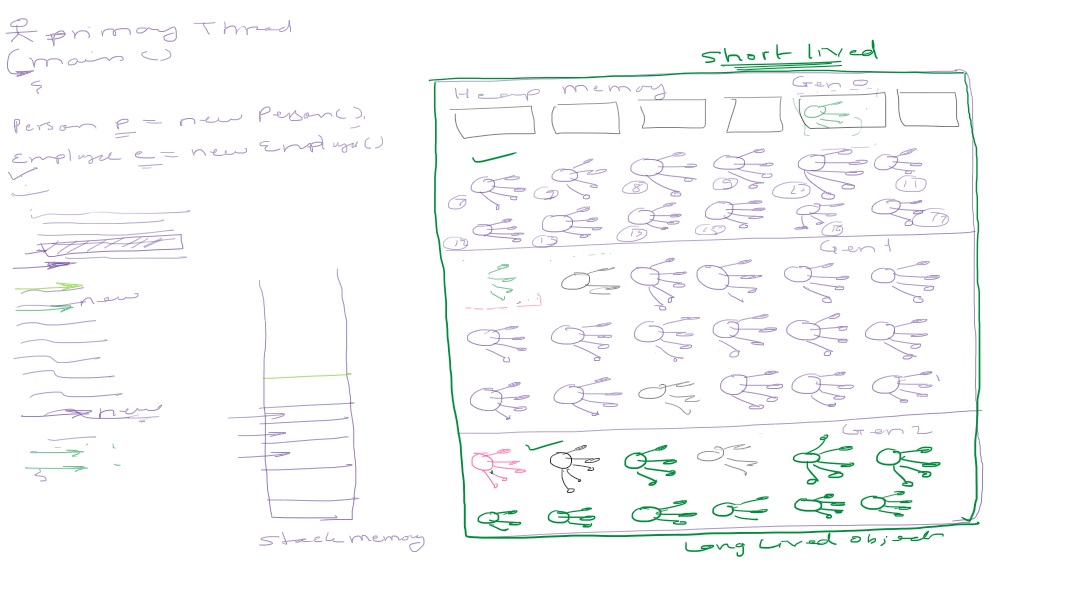 primary Thread
(main ()
{
Person p = new Person();
Employee e = new Employee()
new
new
}
Stack memory
Short lived
Heap Memory
Gen 0
7
8
9
11
13
15
16
17
Gen 1
Gen 2
Long Lived Objects